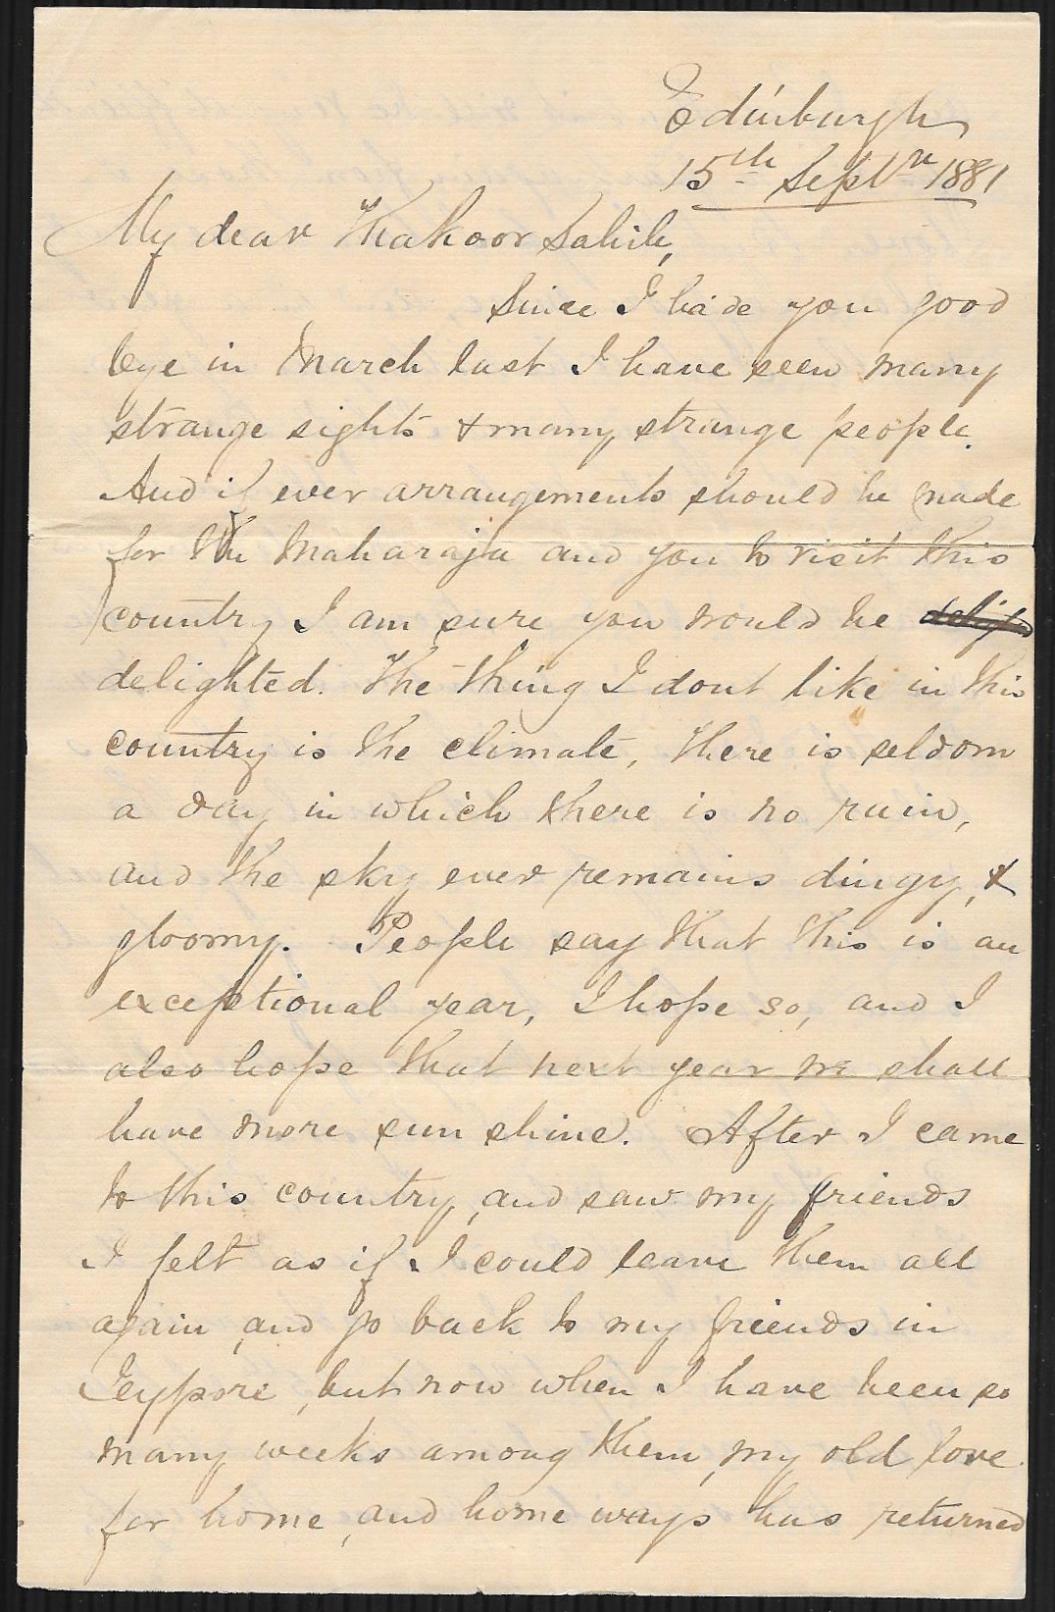 Edinburgh
15th Septr 1881
My dear Thakoor Sahib,
Since I bade you good
bye in March last I have seen many
strange sights & many strange people.
And if ever arrangements should be made
for the Maharaja and you to visit this
country I am sure you would be
delighted. The thing I dont like in this
country is the climate, there is seldom
a day in which there is no rain,
and the sky ever remains dingy, &
gloomy. People say that this is an
exceptional year, I hope so, and I
also hope that next year we shall
have more sun shine. After I came
to this country, and saw my friends
I felt as if I could leave them all
again, and go back to my friends in
Jeypore, but now when I have been so
many weeks among them, my old love
for home, and home ways has returned